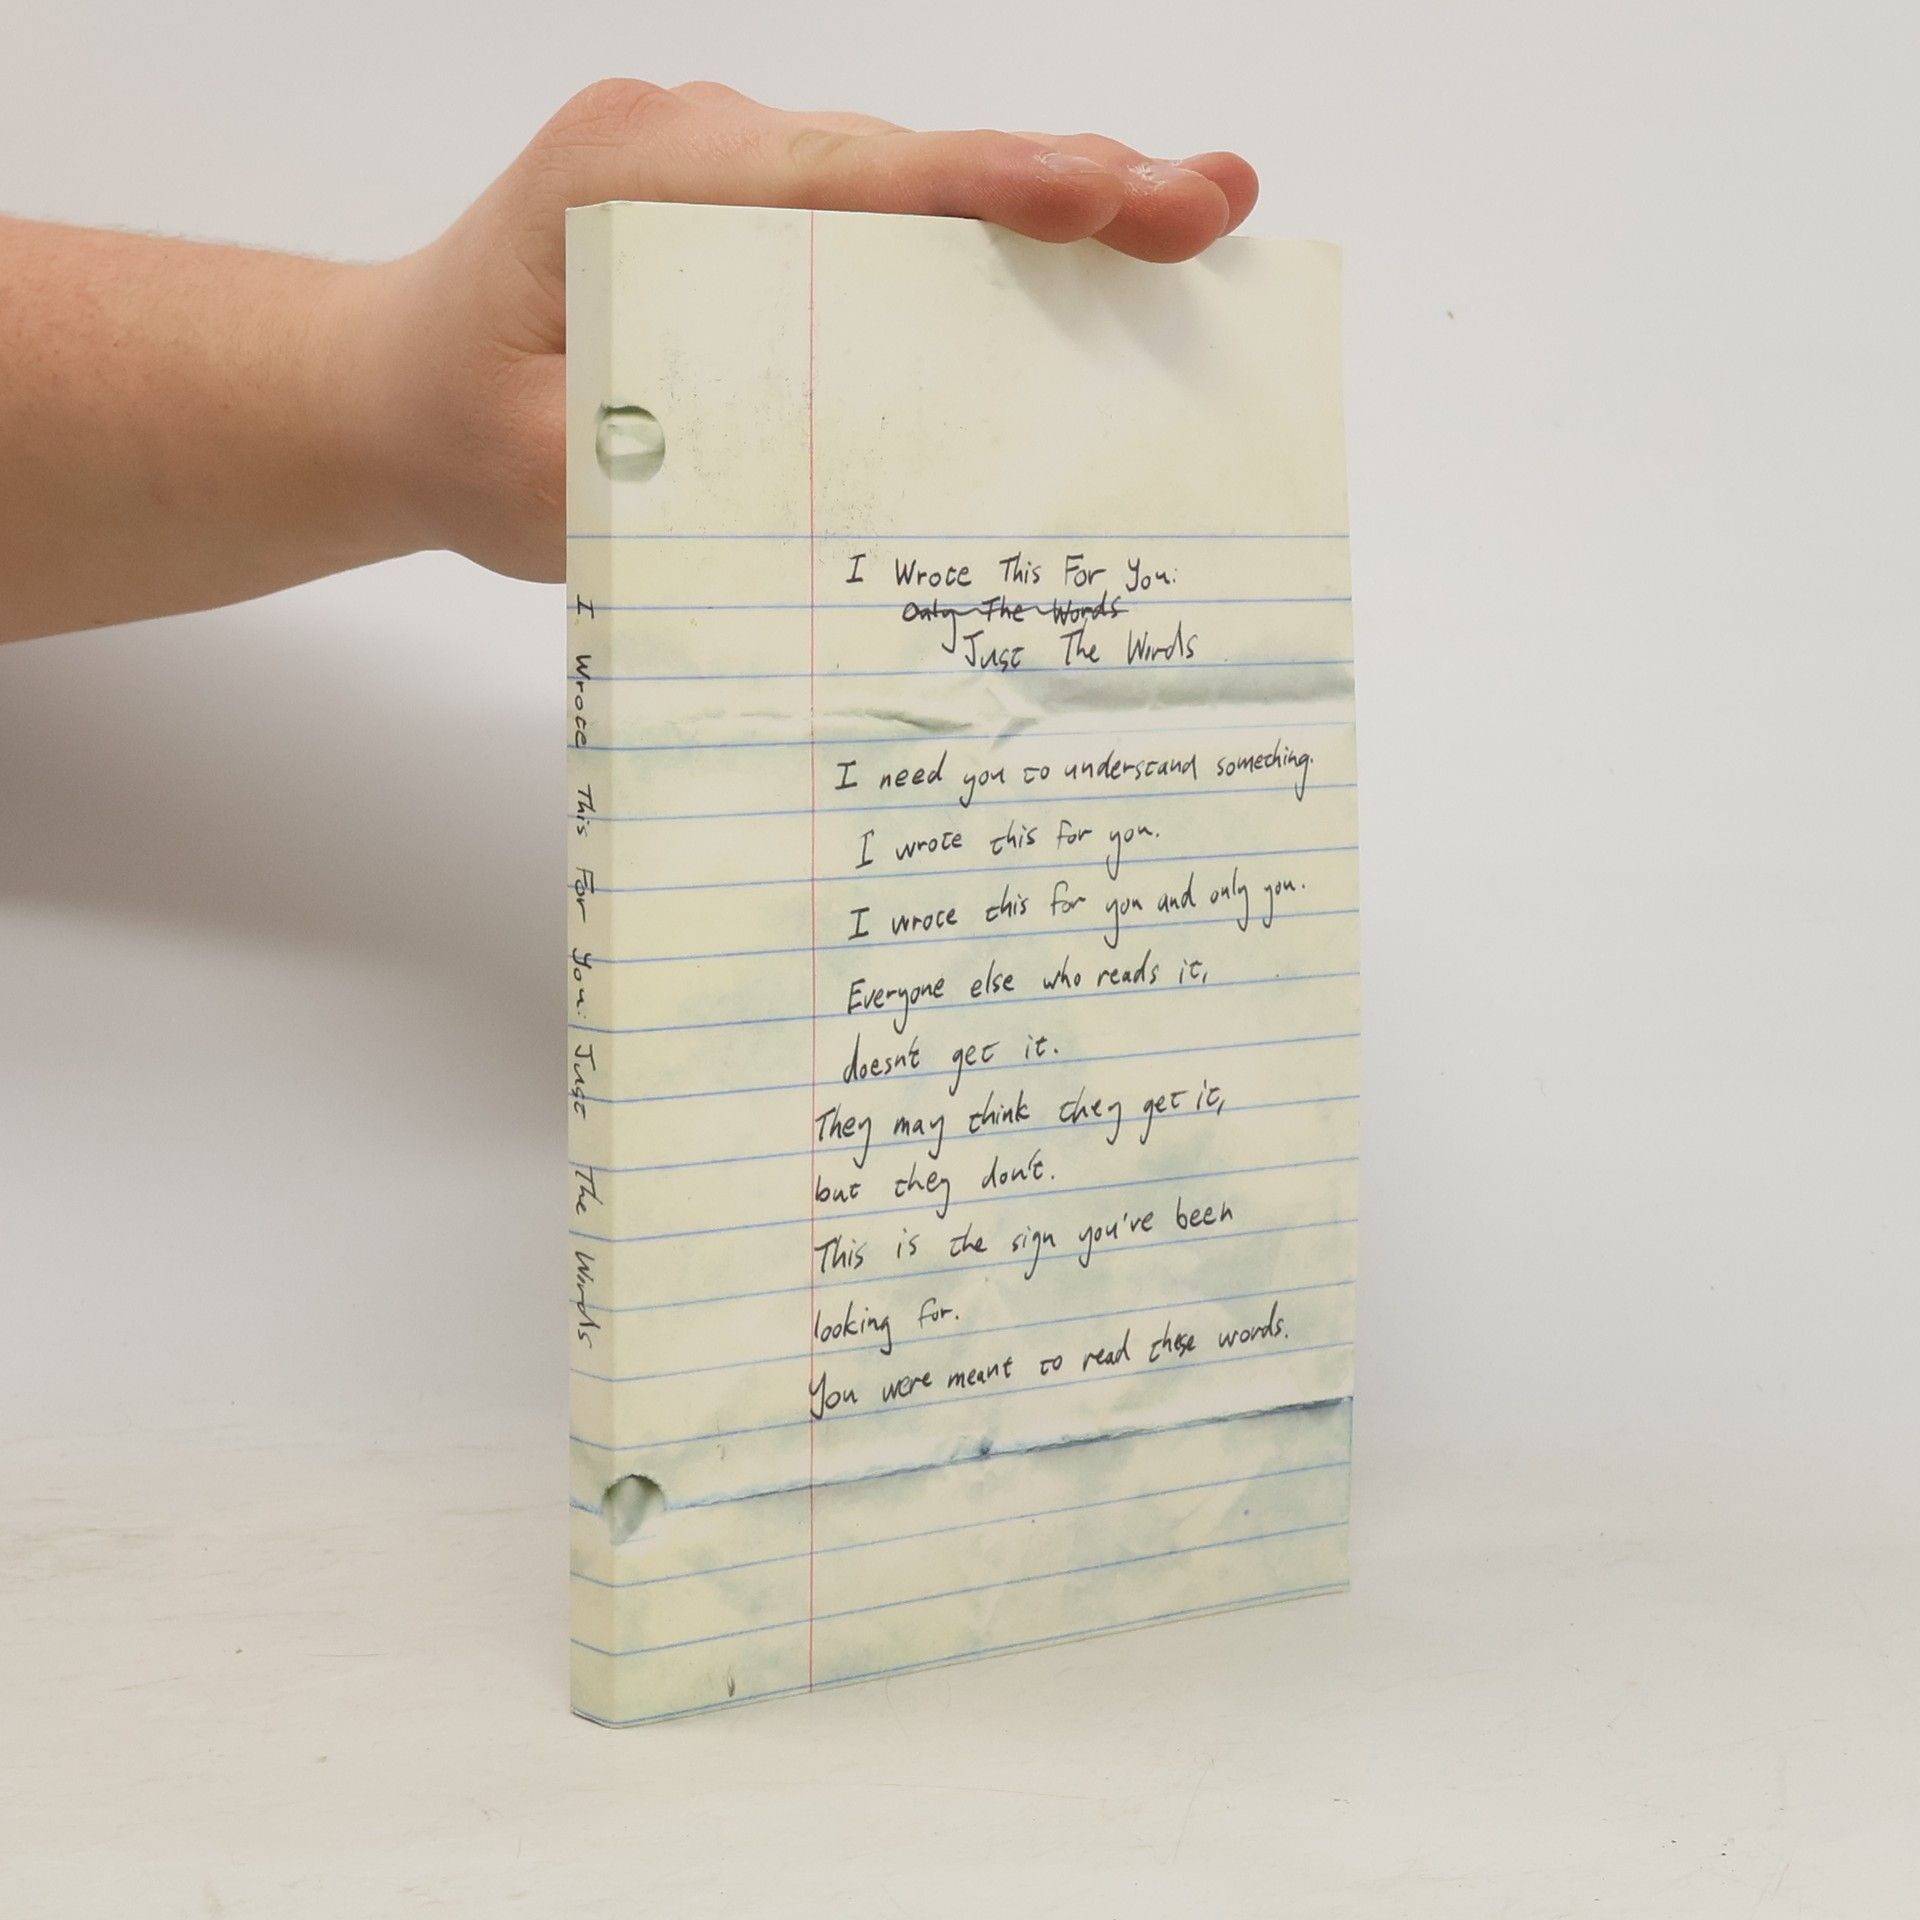 I Wrote This For You:
Only The Words
Just The Words
I need you to understand something.
I wrote this for you.
I wrote this for you and only you.
Everyone else who reads it,
doesn't get it.
They may think they get it,
but they don't.
This is the sign you've been
looking for.
You were meant to read these words.
I Wrote This For You: Just The Words